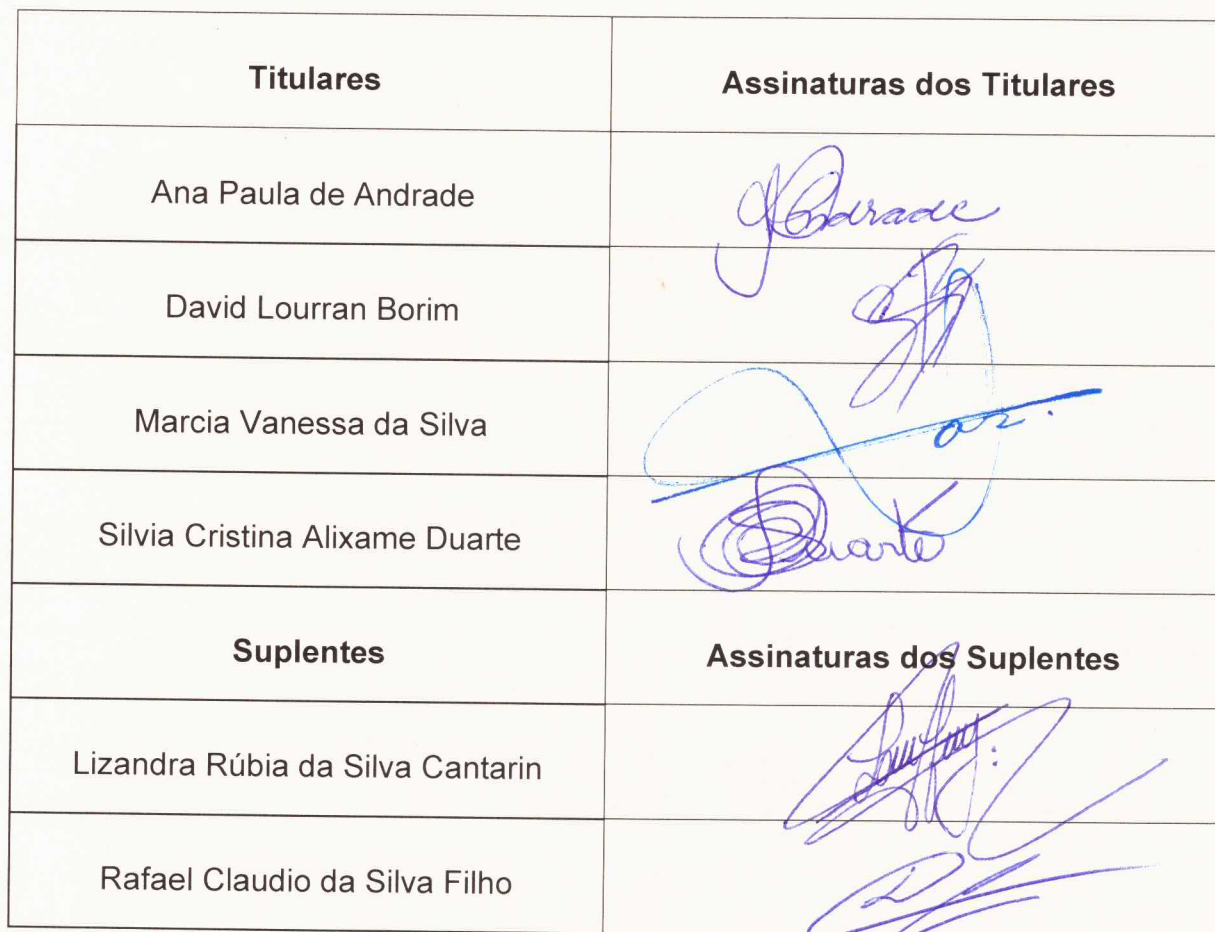 Titulares Assinaturas dos Titulares
Ana Paula de Andrade Andrade
David Lourran Borim
Marcia Vanessa da Silva
Silvia Cristina Alixame Duarte Duarte
Suplentes Assinaturas dos Suplentes
Lizandra Rúbia da Silva Cantarin
Rafael Claudio da Silva Filho